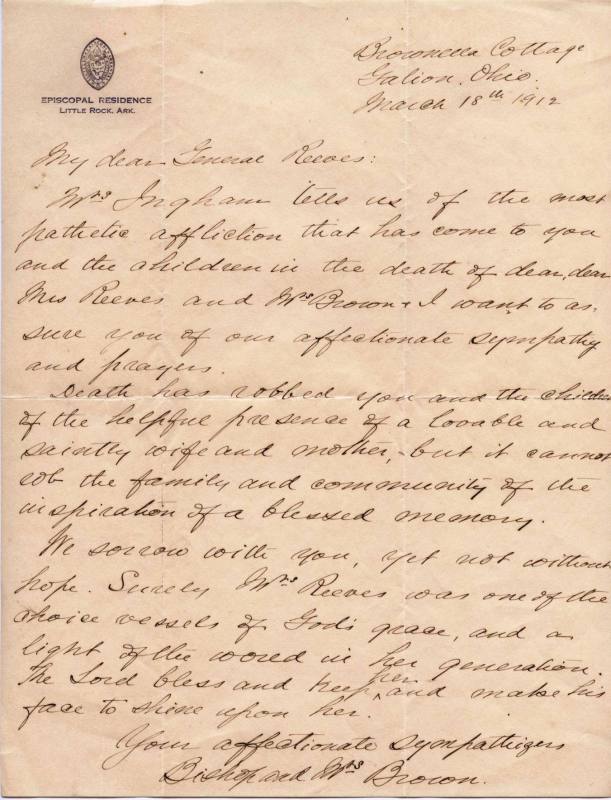 EPISCOPAL RESIDENCE
LITTLE ROCK, ARK.
Brownella Cottage
Galion, Ohio.
March 18th 1912
My dear General Reeves:
Mrs Ingham tells us of the most
pathetic affliction that has come to you
and the children in the death of dear, dear
Mrs Reeves and Mrs Brown & I want to as-
sure you of our affectionate sympathy
and prayers.
Death has robbed you and the children
of the helpful presence of a lovable and
saintly wife and mother, but it cannot
rob the family and community of the
inspiration of a blessed memory.
We sorrow with you, yet not without
hope. Surely Mrs Reeves was one of the
choice vessels of God's grace, and a
light of the world in her generation.
The Lord bless and keep her, and make his
face to shine upon her.
Your affectionate sympathizers
Bishop and Mrs Brown.